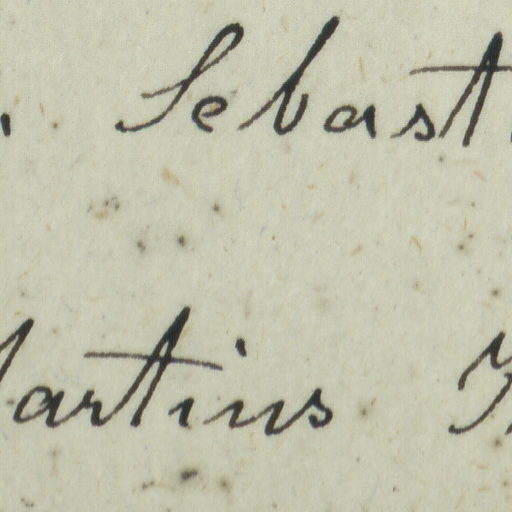 Sebast
artins